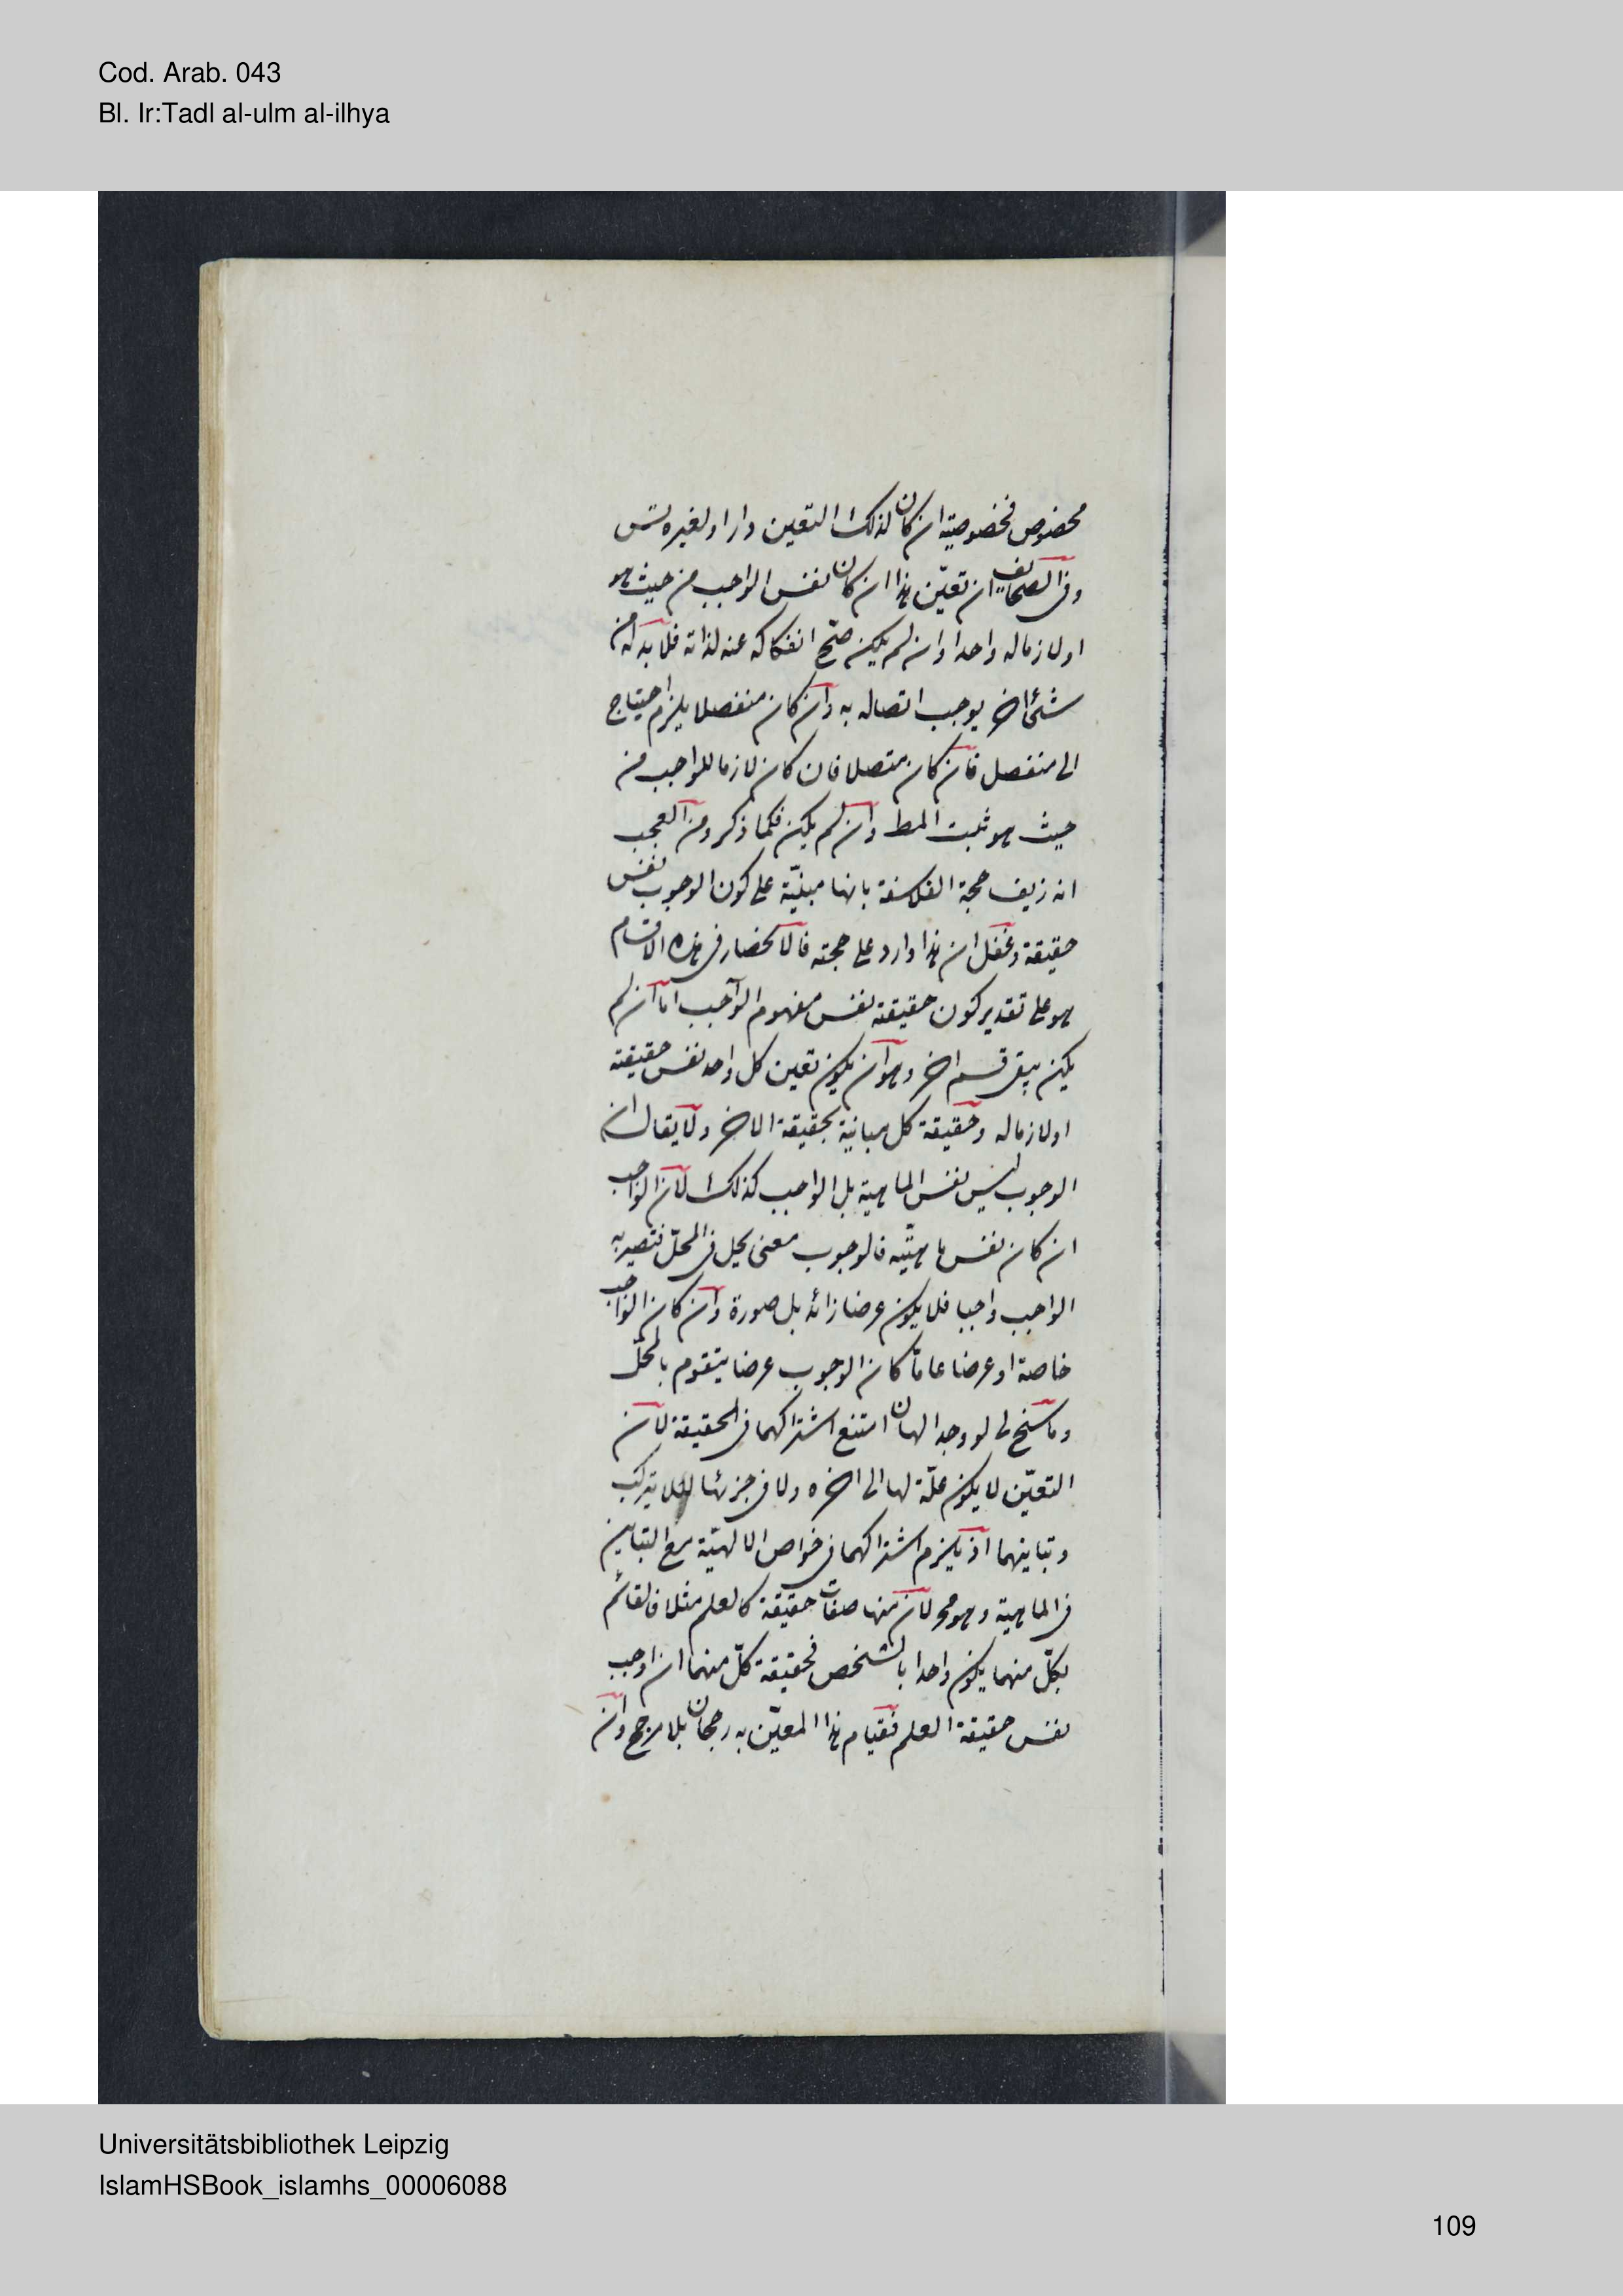 Cod. Arab. 043
Bl. Ir:Tadl al-ulm al-ilhya
مخصوص فخصوصيته ان كان لذلك التعين دار او لغيره تس
وفى الصحائف ان تعيّن هذا ان كان نفس الواجب من حيث هو
او لازما له واحدا وان لم يكن صحّ انفكاكه عنه لذاته فلا بد له من
شئ اخر يوجب اتصاله به وان كان منفصلا يلزم احتياج
الى منفصل فان كان متصلا فان كان لازما للواجب من
حيث هو ثبت المط وان لم يكن فكما ذكر ومن العجب
انه زيف حجة الفلاسفة بانها مبنيّة على كون الوجوب نفس
حقيقة وغفل ان هذا وارد على حجته فالانحصار فى هذه الاقسام
هو على تقدير كون حقيقته نفس مفهوم الواجب اما ان لم
يكن يبقى قسم اخر وهو ان يكون تعين كل واحد نفس حقيقته
او لازما له وحقيقة كل مباينة بحقيقة الاخر ولا يقال ان
الوجوب ليس نفس الماهية بل الواجب كذلك لان الواجب
ان كان نفس ماهيّته فالوجوب معنى يحل فى المحلّ فتصير به
الواجب واجبا فلا يكون عرضا زائد بل صورة وان كان الواجب
خاصة او عرضا عامّا كان الوجوب عرضا يتقوم بالمحلّ
وما سنح لى لو وجد الهان امتنع اشتراكهما فى الحقيقة لان
التعيّن لا يكون علّة لها الى اخره ولا فى جزئها لئلا يتركب
وتباينهما اذ يلزم اشتراكهما فى خواص الالهيّة مع التباين
فى الماهية وهو مح لان منها صفات حقيقة كالعلم مثلا فالقائم
بكلّ منهما يكون واحدا بالشخص فحقيقة كلّ منهما ان اوجب
نفس حقيقة العلم فقيام هذا المعيّن به رجحان بلا مرجح وان
Universitätsbibliothek Leipzig
IslamHSBook_islamhs_00006088
109